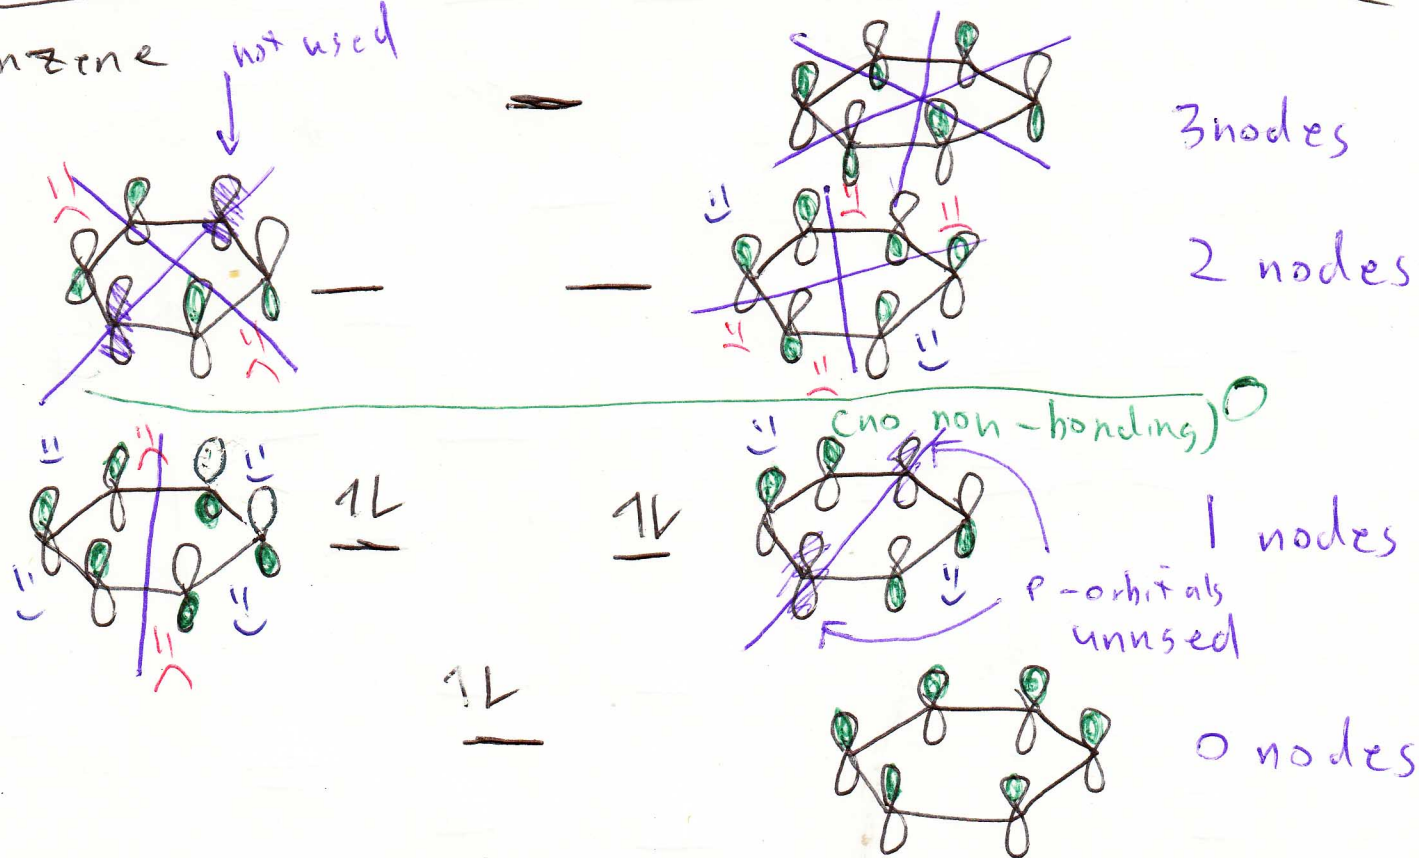 nzene
not used
3 nodes
2 nodes
(no non-bonding) 0
1 nodes
p-orbitals
unused
0 nodes